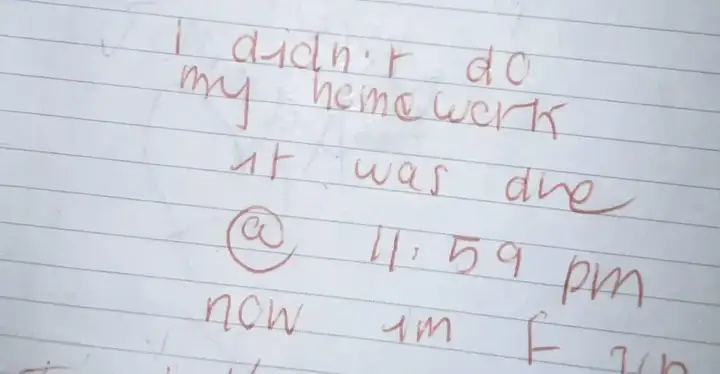 I didn't do
my homework
it was due
@ 11:59 pm
now im f